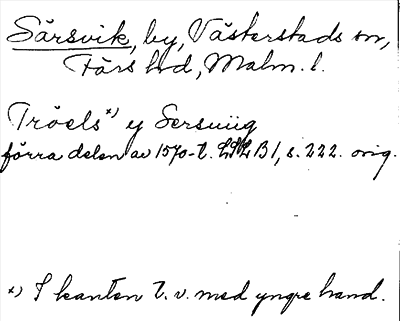 Särsvik, by, Västerstads sn,
Färs hd, Malm. l.
Tröels ˣ⁾ y Sersuiig
förra delen av 1570-t. LSLB 1, s. 222. orig.
ˣ⁾ I kanten t. v. med yngre hand.